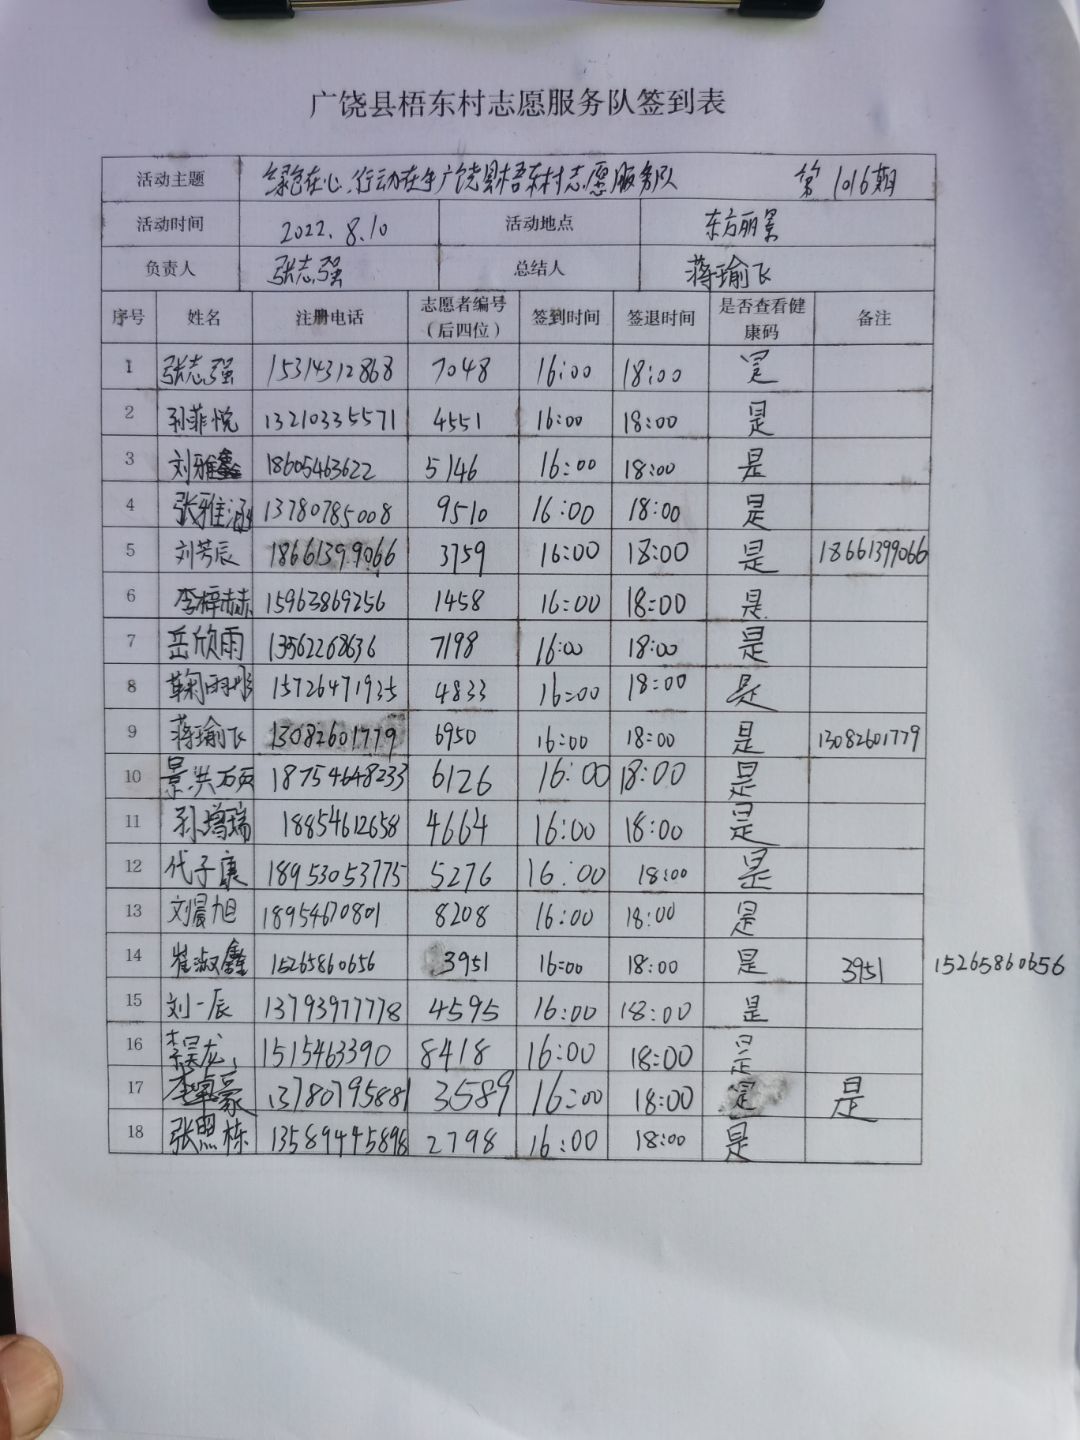 广饶县梧东村志愿服务队签到表
活动主题 绿色在心 行动在手广饶县梧东村志愿服务队 第1016期
活动时间 2022.8.10 活动地点 东方丽景
负责人 张志强 总结人 蒋瑜飞
序号 姓名 注册电话 志愿者编号(后四位) 签到时间 签退时间 是否查看健康码 备注
1 张志强 15314312868 7048 16:00 18:00 是
2 孙菲悦 13210335571 4551 16:00 18:00 是
3 刘雅鑫 18605463622 5146 16:00 18:00 是
4 张雅涵 13780785008 9510 16:00 18:00 是
5 刘芳辰 18661399066 3759 16:00 18:00 是 18661399066
6 李梓赫 15963869256 1458 16:00 18:00 是
7 岳欣雨 13562268636 7198 16:00 18:00 是
8 鞠雨彤 15726471935 4833 16:00 18:00 是
9 蒋瑜飞 13082601779 6950 16:00 18:00 是 13082601779
10 景洪 18754648233 6126 16:00 18:00 是
11 孙增瑞 18854612658 4664 16:00 18:00 是
12 代子康 18953053775 5276 16:00 18:00 是
13 刘晨旭 18954670801 8208 16:00 18:00 是
14 崔淑鑫 15265860656 3951 16:00 18:00 是 3951 15265860656
15 刘一辰 13793977778 4595 16:00 18:00 是
16 李昊龙 1515463390 8418 16:00 18:00 是
17 李卓豪 13780795881 3589 16:00 18:00 是 是
18 张照栋 13589445898 2798 16:00 18:00 是